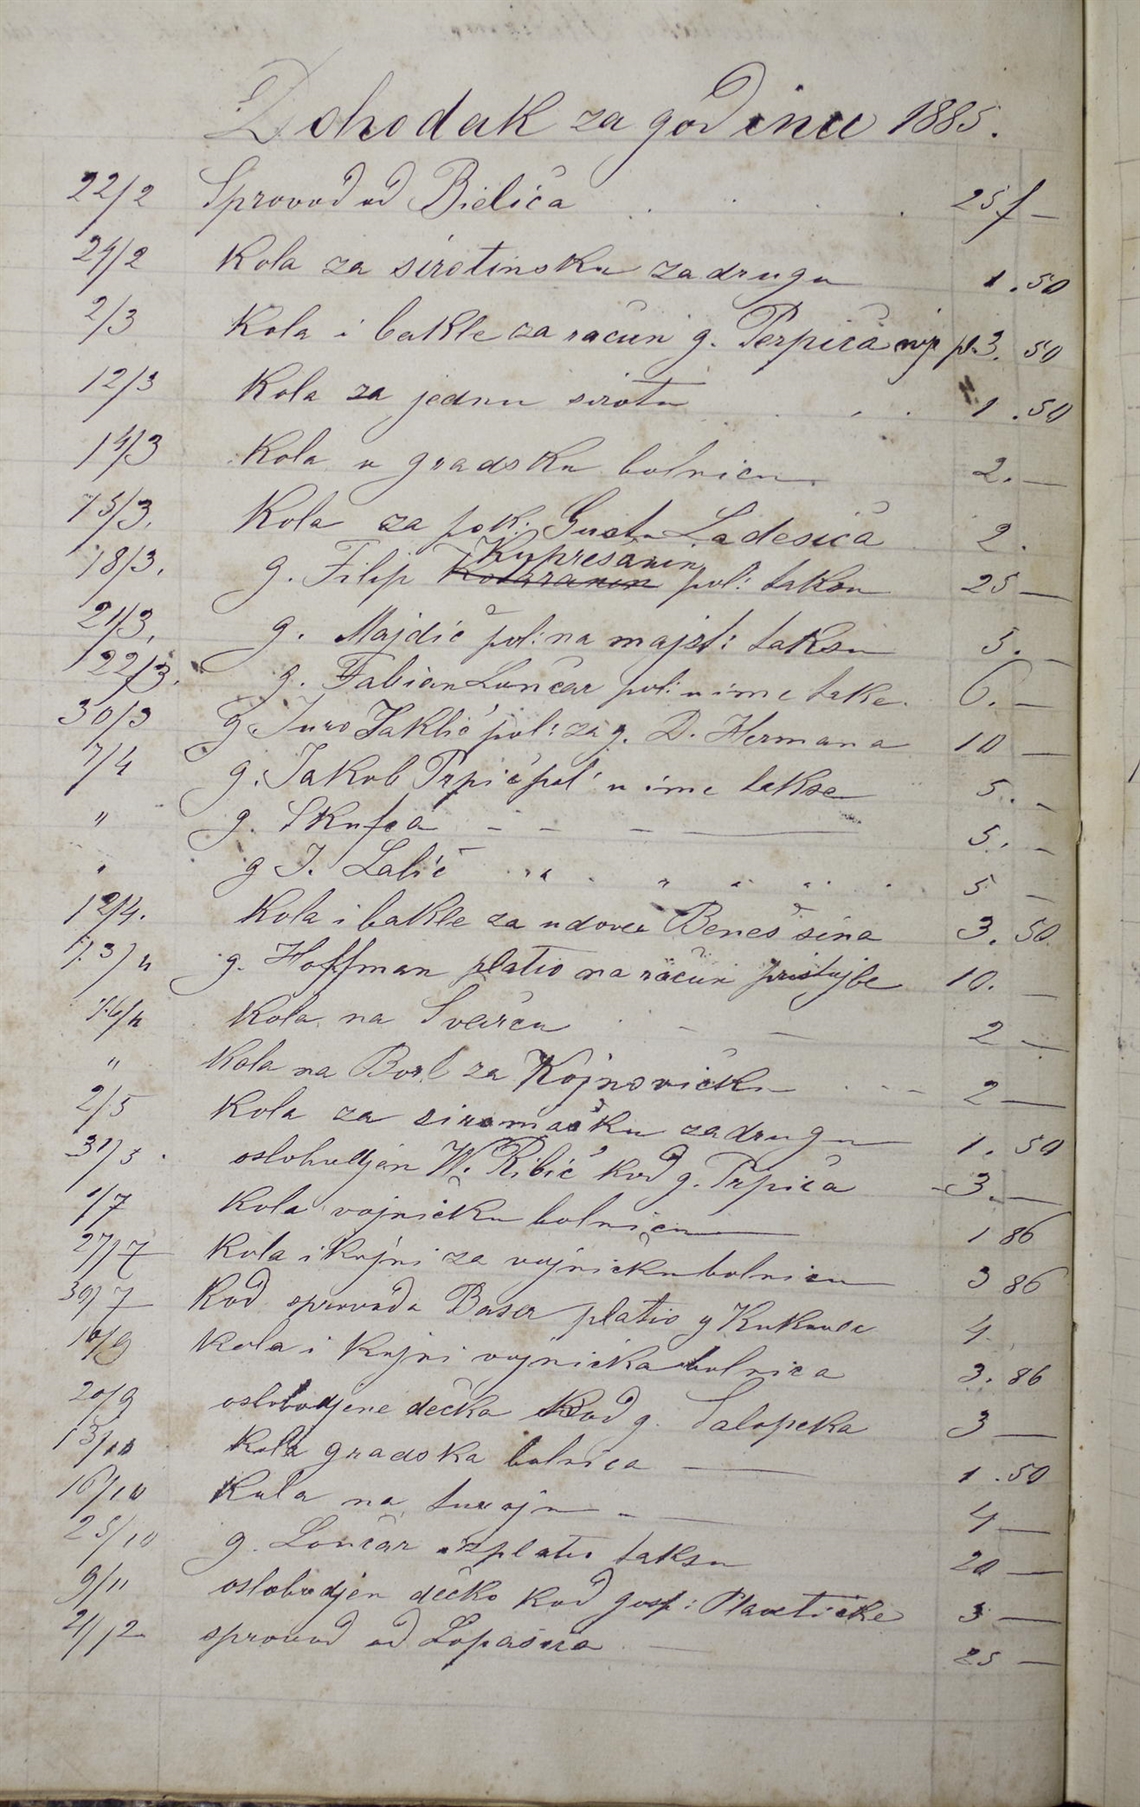 Dohodak za godinu 1885.
22/2 Sprovod od Bielića . . . . 25 f —
24/2 Kola za sirotinsku zadrugu 1.50
2/3 Kola i bakle za račun g. Perpića nije pl. 3.50
12/3 Kola za jednu sirotu . . . 1.50
14/3 Kola u gradsku bolnicu 2. —
15/3. Kola za pok. Gustu Ladesića 2.
18/3. g. Filip Kypresanin pol: taksu 25 —
21/3. g. Majdić pol: na majst: taksu 5. —
22/3. g. Fabian Lončar pol: u ime takse. 6. —
30/3 g Juro Jaklić pol: za g. D. Hermana 10 —
7/4 g. Jakob Trpić pol: u ime takse 5. —
" g. Skufca — — — 5. —
" g J. Lalić " " " " 5 —
12/4. Kola i bakle za udovca Beneš sina 3.50
13/4 g. Hoffman platio na račun pristojbe 10. —
16/4 Kola na Švarču — — 2 —
" Kola na Bosl za Kojnovičku . . . — 2 —
2/5 Kola za siromašku zadrugu 1.50
31/5. oslobodjen W. Ribić kod g. Trpića 3. —
1/7 Kola vojničku bolnicu 1 86
27/7 Kola i konjni za vojničku bolnicu 3 86
30/7 Kod sprovoda Baser platio g Kukavec 4
10/9 Kola i konjni vojnička bolnica 3.86
20/9 oslobodjene dečka kod g. Salopeka 3 —
13/10 Kola gradska bolnica — 1.50
16/10 Kola na turajn — 4 —
25/10 g. Lončar izplatio taksu 20 —
9/11 oslobodjen dečko kod gosp: Plavetićke 3 —
2/12 sprovod od Lopašića — 25 —